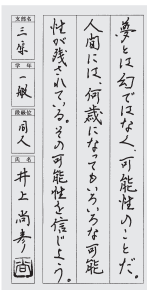 夢とは幻ではなく、可能性のことだ。
人間には、何歳になってもいろいろな可能
性が残されている。その可能性を信じよう。
支部名
三泉
学年
一般
段級位
同人
氏名
井上尚彦
尚